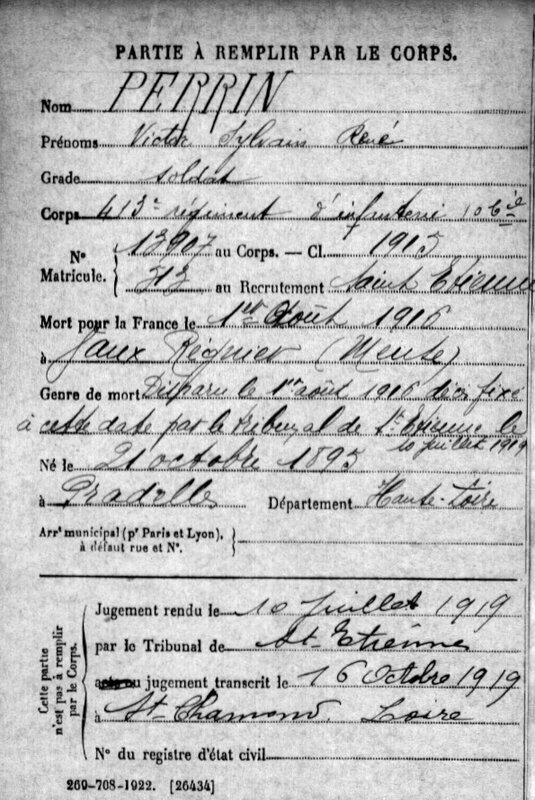 PARTIE À REMPLIR PAR LE CORPS.
Nom PERRIN
Prénoms Victor Sylvain René
Grade soldat
Corps 413e régiment d'infanterie 10e Cie
N° Matricule. 13907 au Corps. — Cl. 1915
713 au Recrutement Saint Etienne
Mort pour la France le 1er Août 1916
à Vaux Régnier (Meuse)
Genre de mort Disparu le 1er août 1916 fixé
à cette date par le tribunal de St Etienne le
10 juillet 1919
Né le 21 octobre 1895
à Pradelles Département Haute-Loire
Arrt municipal (pr Paris et Lyon), à défaut rue et N°.
Cette partie n'est pas à remplir par le Corps.
Jugement rendu le 10 Juillet 1919
par le Tribunal de St-Etienne
acte ou jugement transcrit le 16 Octobre 1919
à St-Chamond. Loire
N° du registre d'état civil
269-708-1922. [26434]